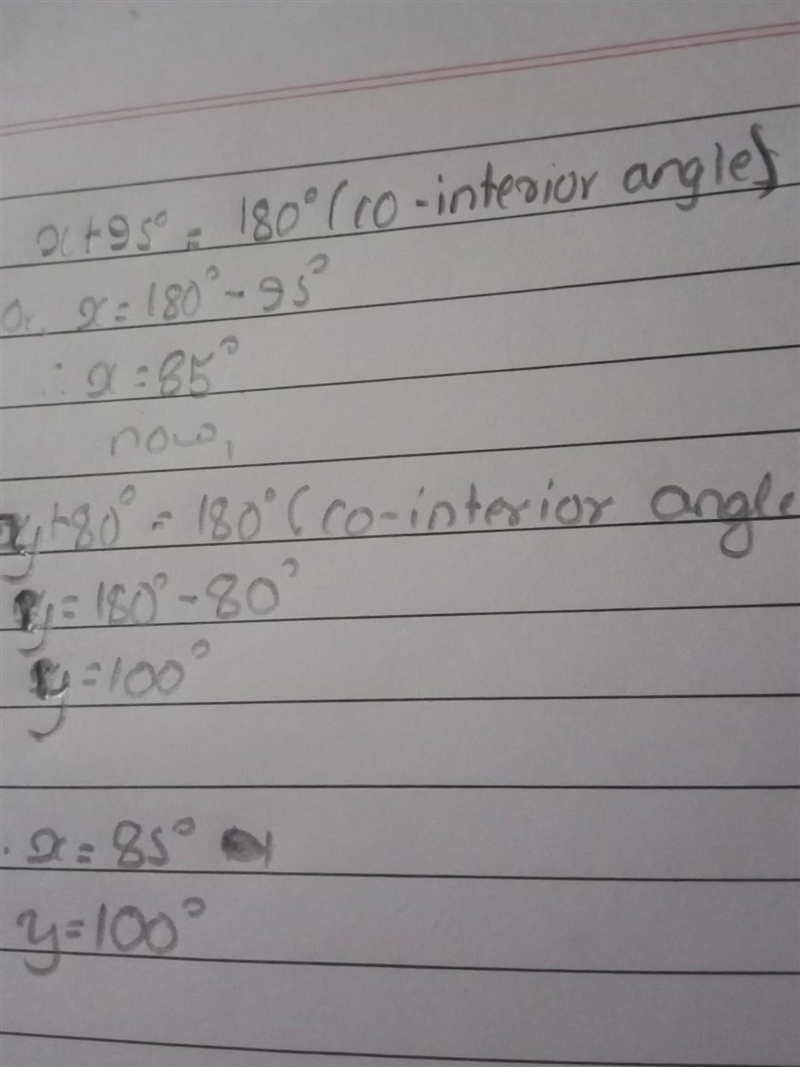 x+95° = 180° (co-interior angles)
Or, x = 180° - 95°
∴ x = 85°
now,
y+80° = 180° (co-interior angle
y = 180° - 80°
y = 100°
. x = 85°
y = 100°